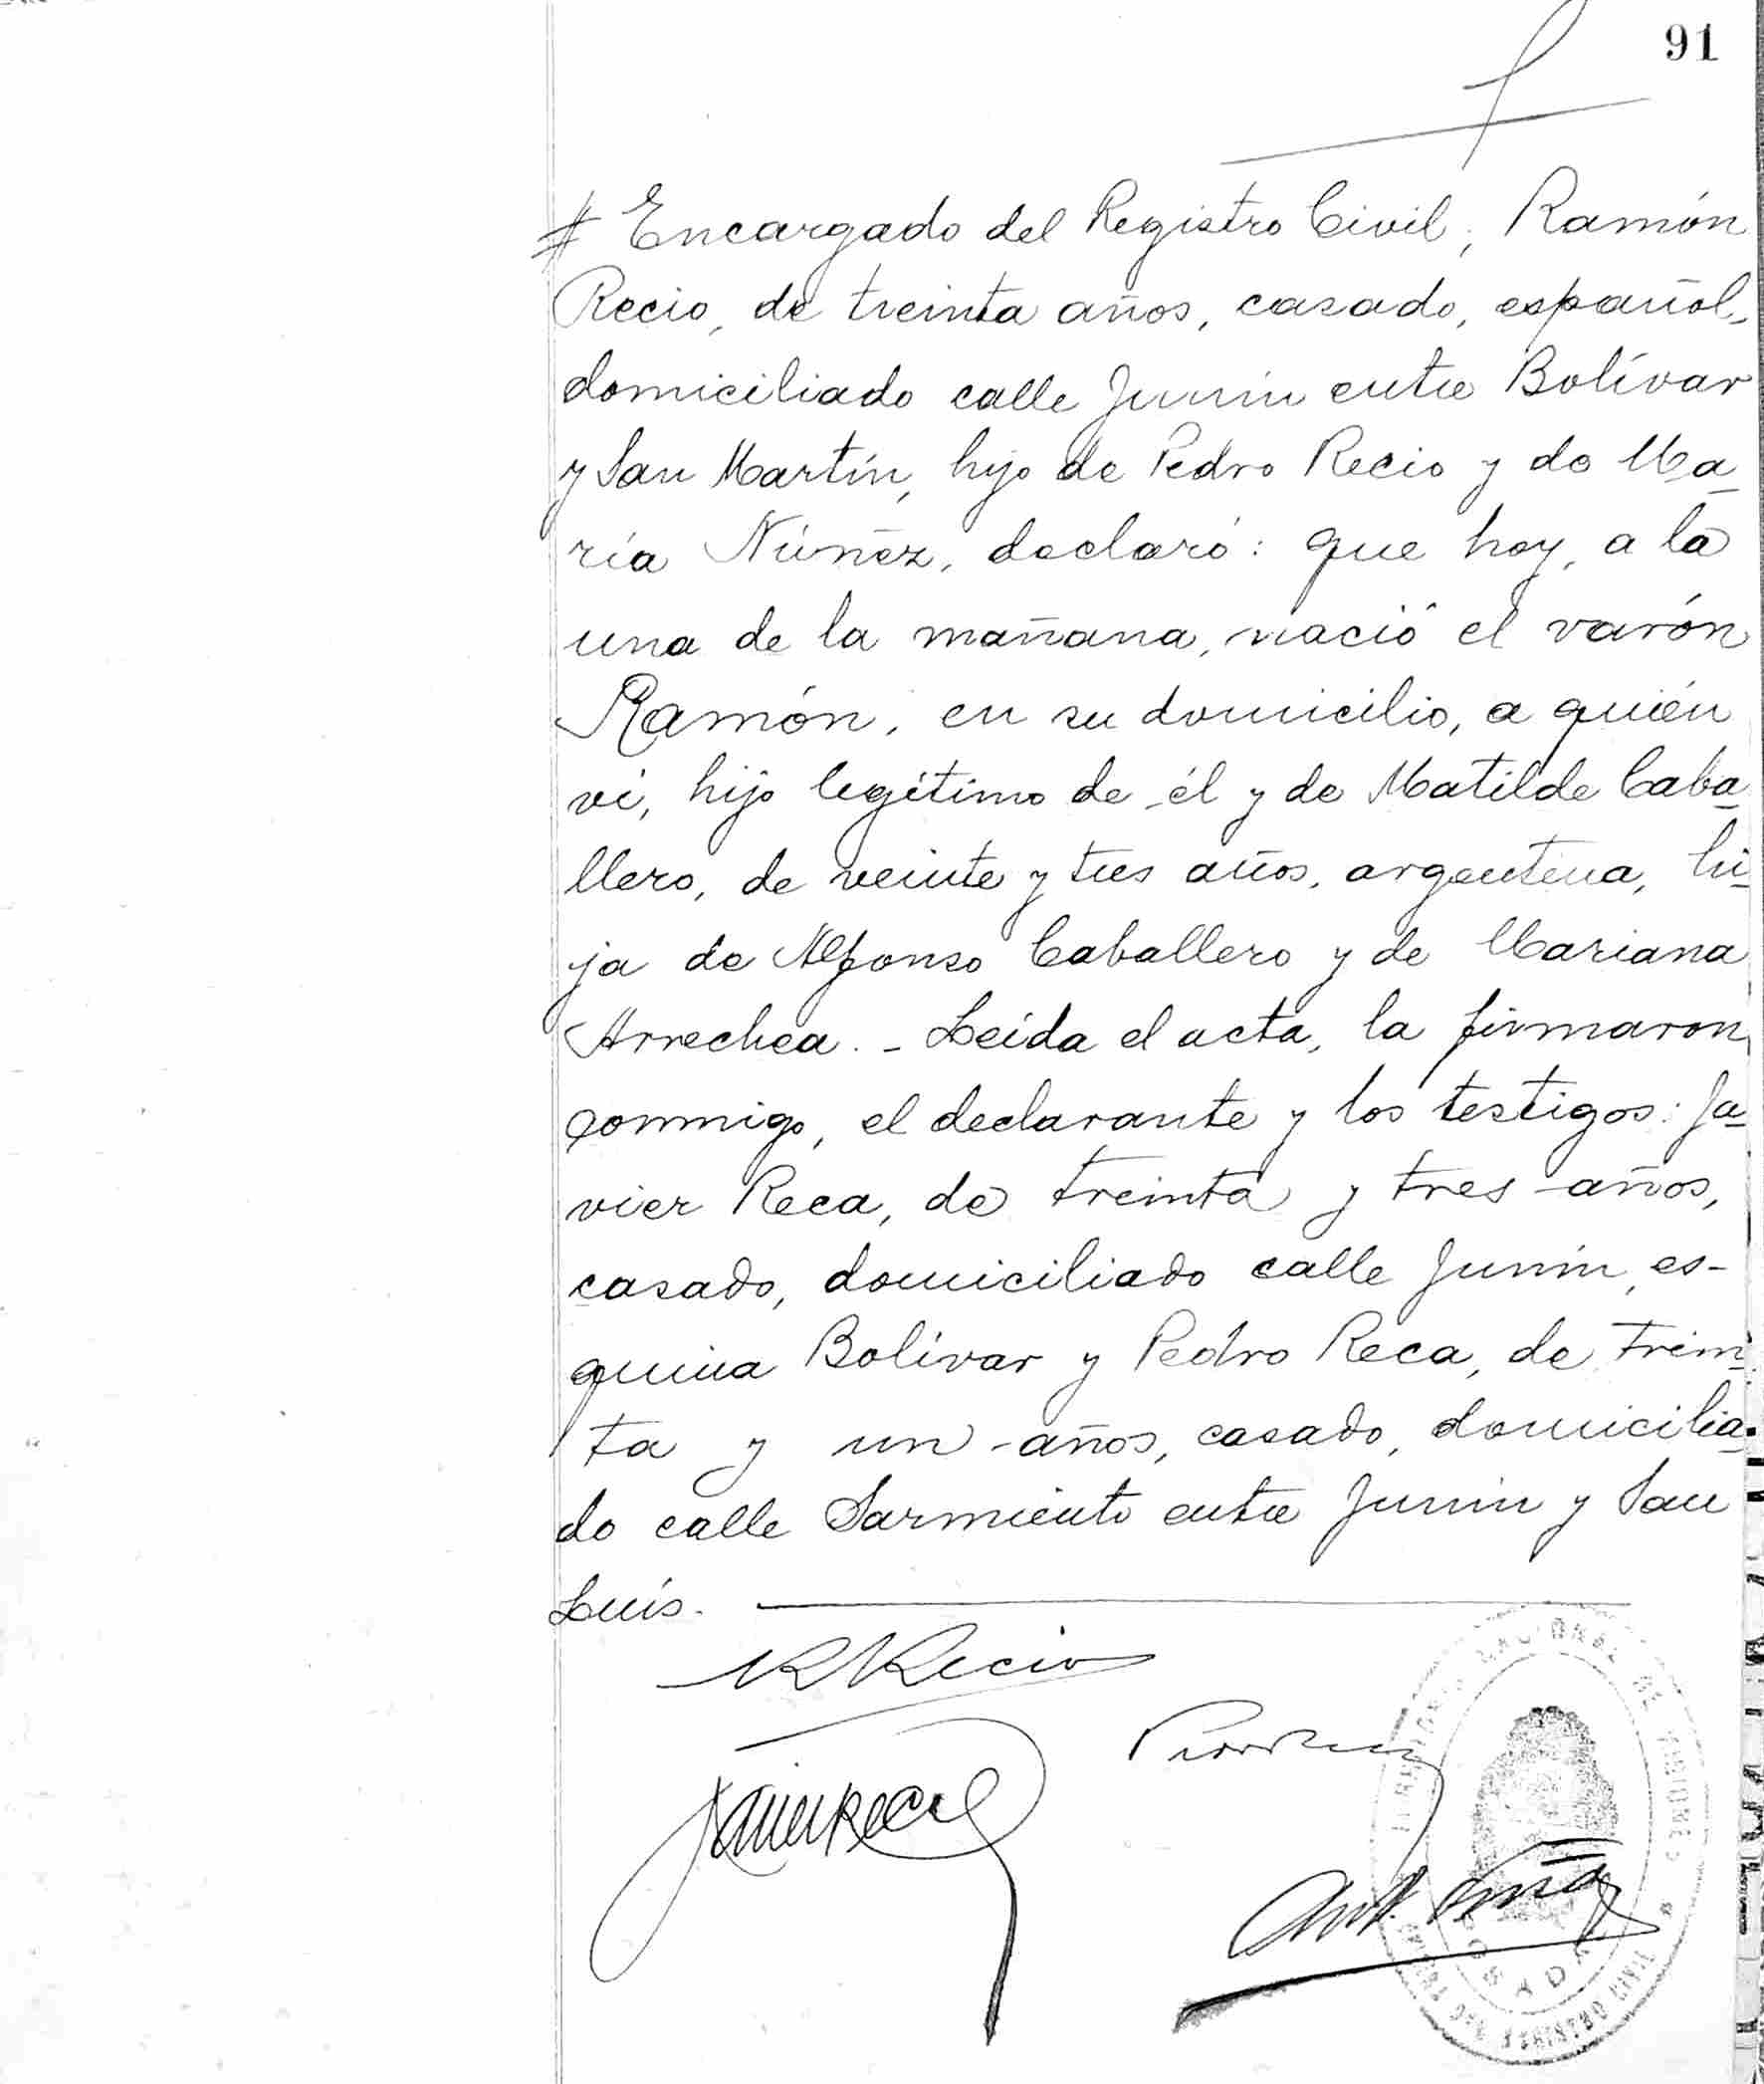 91
# Encargado del Registro Civil, Ramón
Recio, de treinta años, casado, español,
domiciliado calle Junín entre Bolívar
y San Martín, hijo de Pedro Recio y de Ma-
ría Núñez, declaró: que hoy, a la
una de la mañana, nació el varón
Ramón, en su domicilio, a quién
ví, hijo legítimo de él y de Matilde Caba-
llero, de veinte y tres años, argentina, hi-
ja de Alfonso Caballero y de Mariana
Arrechea. - Leída el acta, la firmaron
conmigo, el declarante y los testigos: Ja-
vier Reca, de treinta y tres años,
casado, domiciliado calle Junín, es-
quina Bolívar y Pedro Reca, de trein-
ta y un años, casado, domicilia-
do calle Sarmiento entre Junín y San
Luís.
R Recio
Javier Reca
TERRITORIO NACIONAL DE MISIONES
OFICINA DEL REGISTRO CIVIL
POSADAS